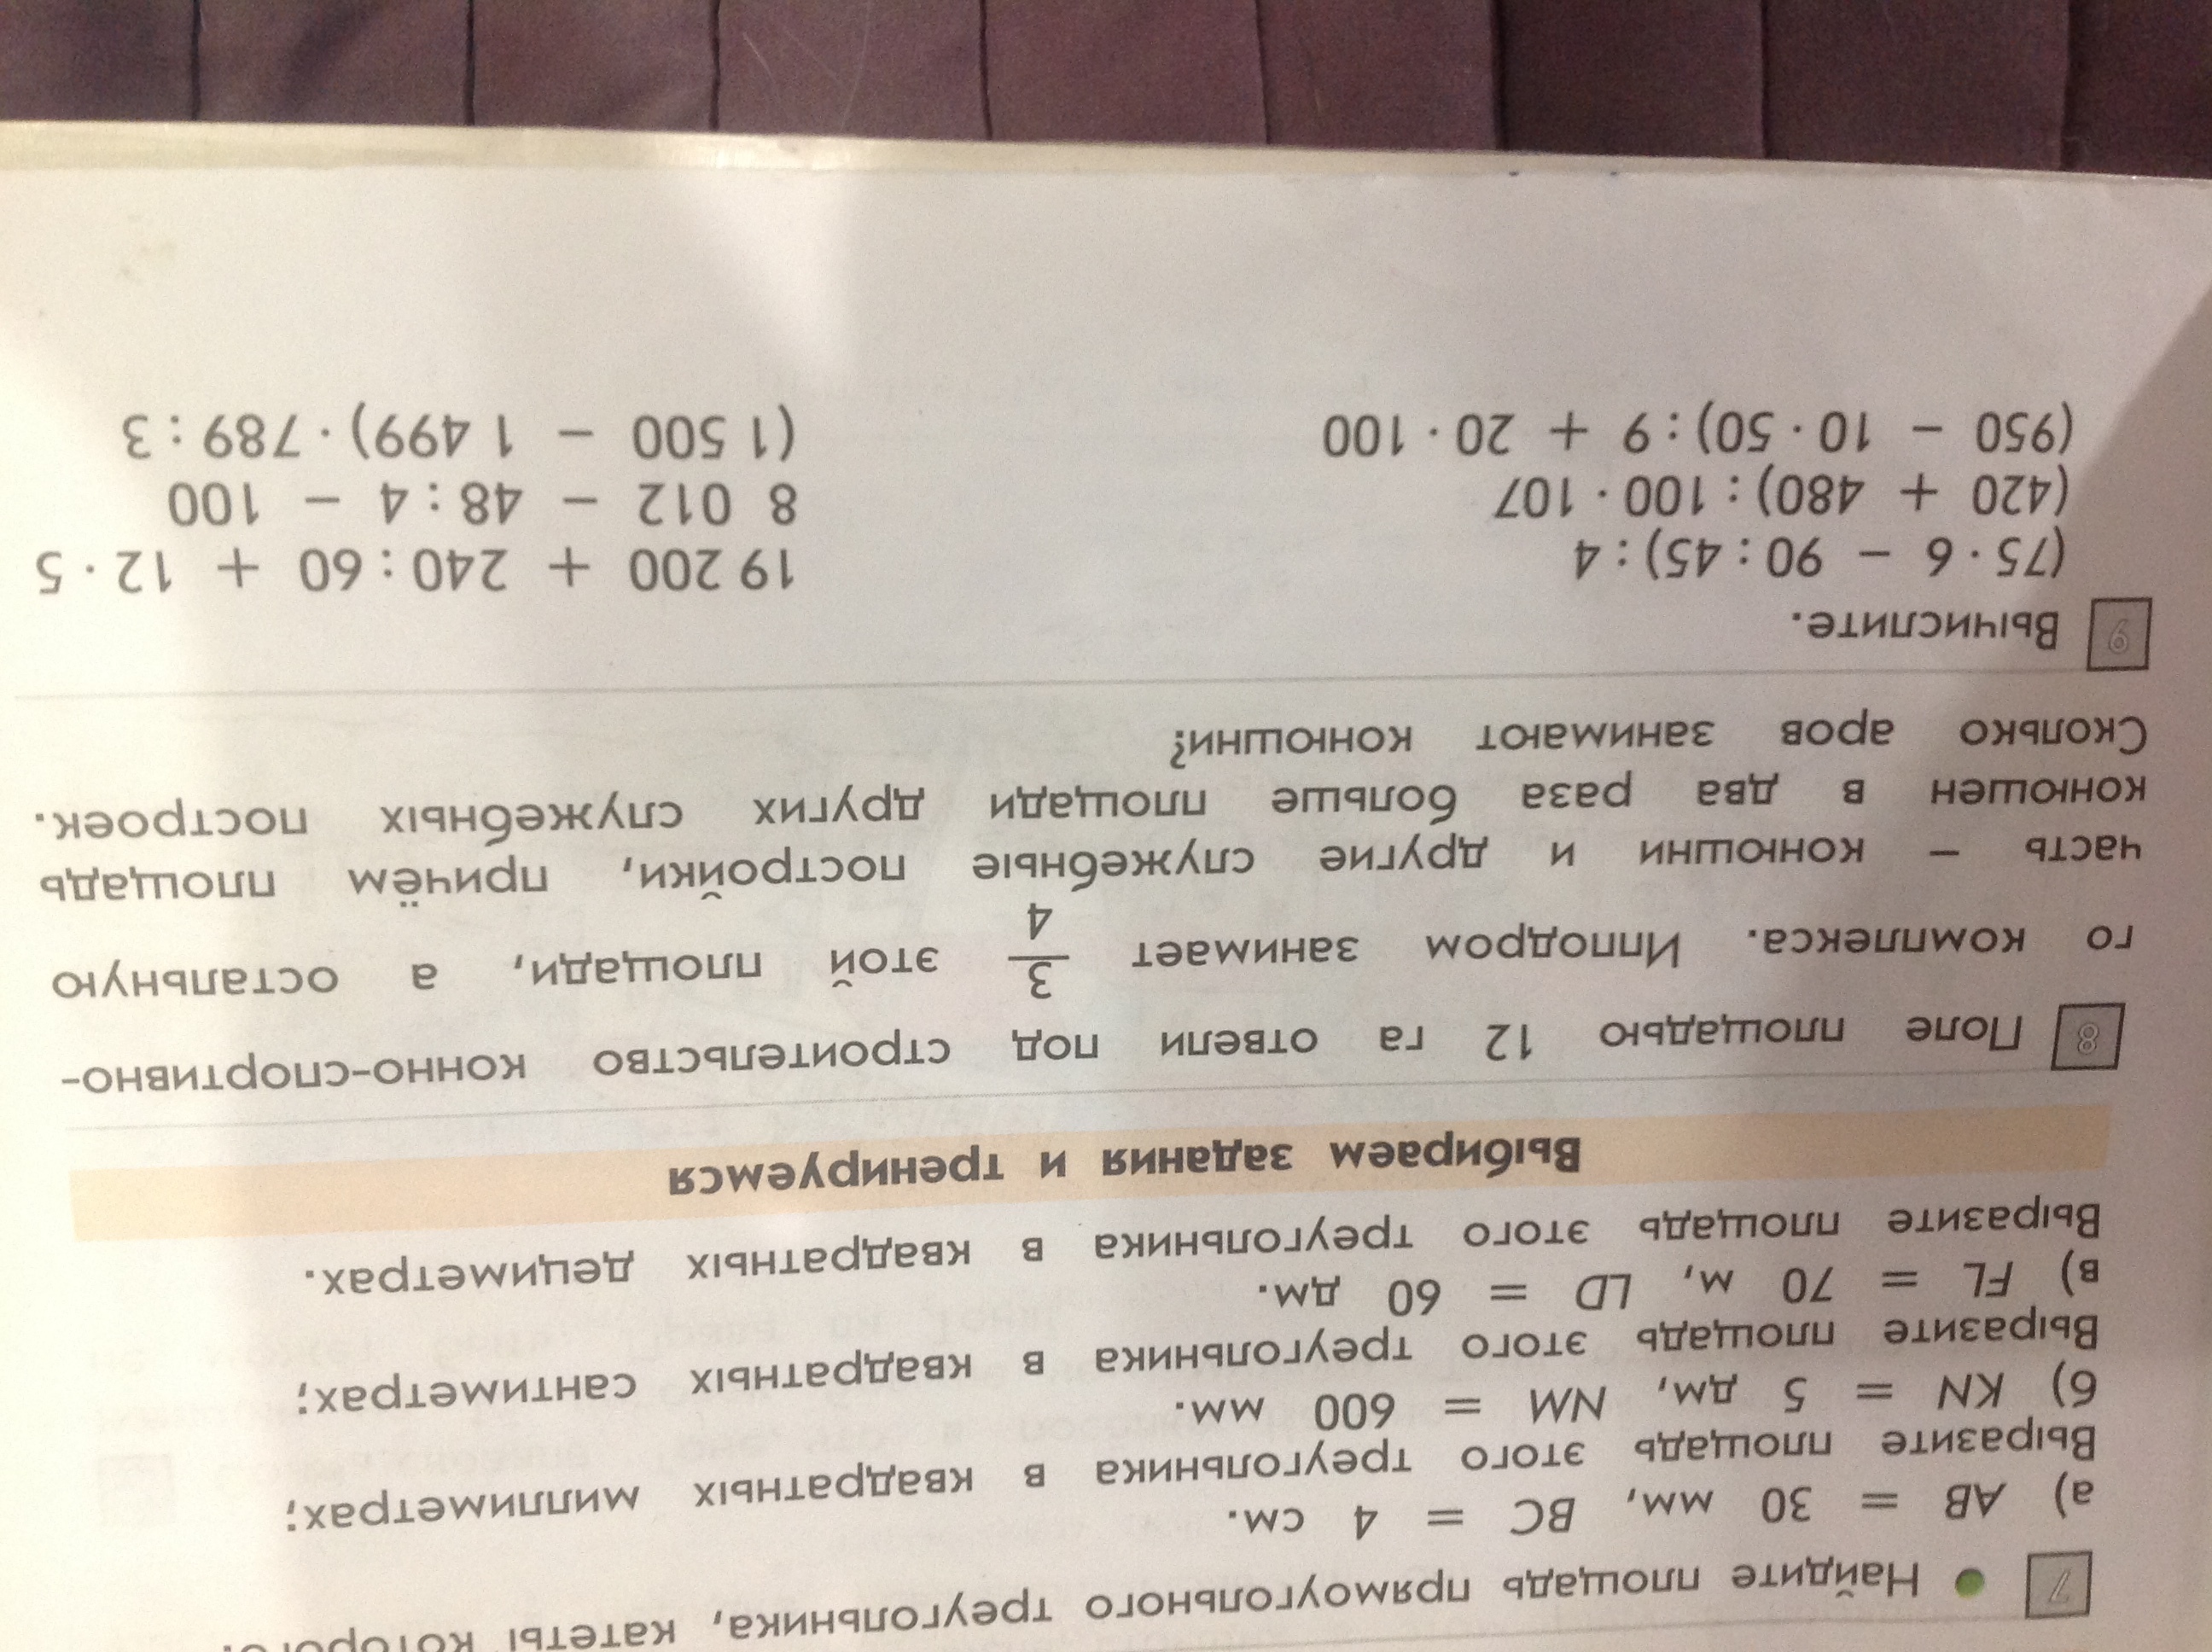 7 Найдите площадь прямоугольного треугольника, катеты которого:
а) AB = 30 мм, BC = 4 см.
Выразите площадь этого треугольника в квадратных миллиметрах;
б) KN = 5 дм, NM = 600 мм.
Выразите площадь этого треугольника в квадратных сантиметрах;
в) FL = 70 м, LD = 60 дм.
Выразите площадь этого треугольника в квадратных дециметрах.
Выбираем задания и тренируемся
8 Поле площадью 12 га отвели под строительство конно-спортивно-
го комплекса. Ипподром занимает 3/4 этой площади, а остальную
часть – конюшни и другие служебные постройки, причём площадь
конюшен в два раза больше площади других служебных построек.
Сколько аров занимают конюшни?
9 Вычислите.
(75 · 6 – 90 : 45) : 4 19 200 + 240 : 60 + 12 · 5
(420 + 480) : 100 · 107 8 012 – 48 : 4 – 100
(950 – 10 · 50) : 9 + 20 · 100 (1 500 – 1 499) · 789 : 3